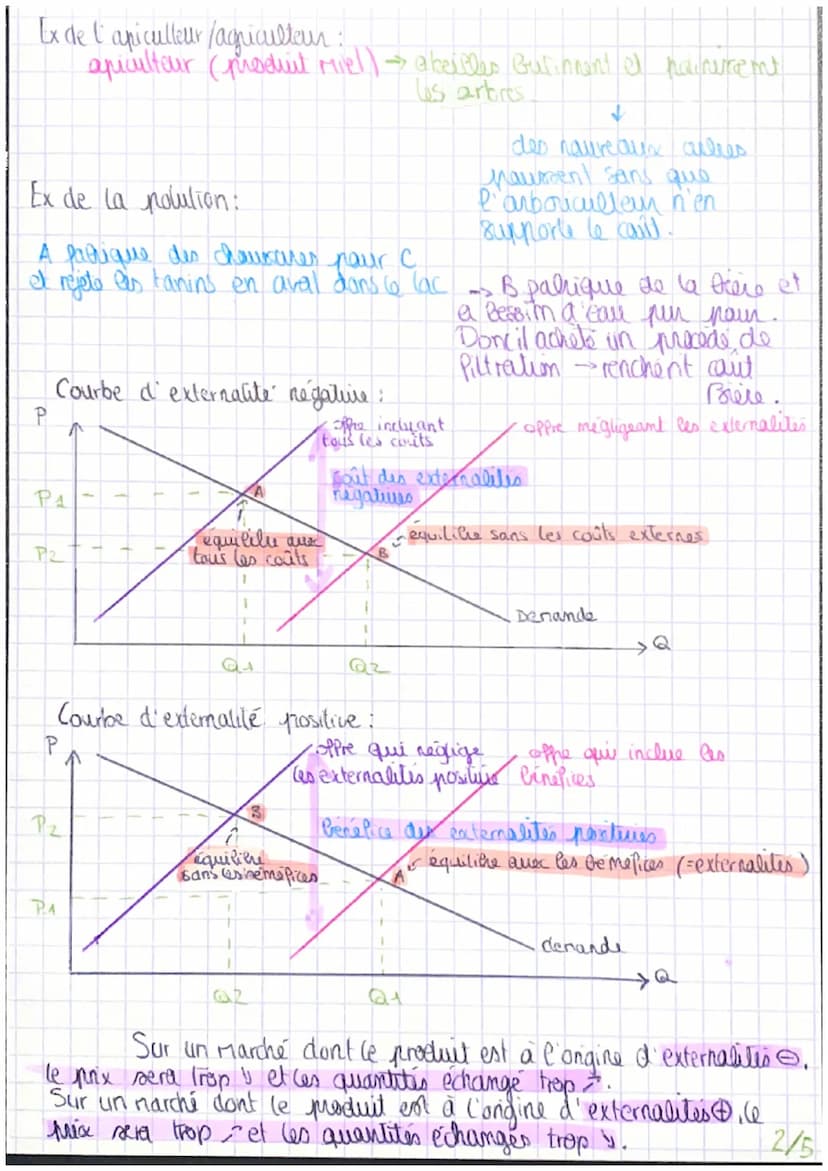 Ex de l'apiculteur/agriculteur :
apiculteur (produit miel) → abeilles butinnent et
les arbres
↓
des nouveaux arbres
poussent sans que
l'arboriculteur n'en
supporte le coût.
Ex de la polution :
A fabrique des chaussures pour C
et rejete les tanins en aval dans le lac
→ B fabrique de la bière et
a besoin d'eau pur pour.
Donc il achète un procédé de
filtration → renchérit coût
bière.
Courbe d'externalité négative :
P
offre incluant
tous les coûts
offre négligeant les externalités
coût des externalités
négatives
P1
A
équilibre avec
tous les coûts
équilibre sans les coûts externes
P2
B
Demande
Q
Q1
Q2
Courbe d'externalité positive :
P
offre qui néglige
les externalités positives
offre qui inclue les
bénéfices
P2
B
Bénéfice des externalités positives
équilibre
sans les bénéfices
équilibre avec les bénéfices (=externalités)
A
P1
demande
Q
Q2
Q1
Sur un marché dont le produit est à l'origine d'externalités ⊖,
le prix sera trop ↘ et les quantités échangé trop ↗.
Sur un marché dont le produit est à l'origine d'externalités ⊕, le
prix sera trop ↗ et les quantités échangés trop ↘.
2/5